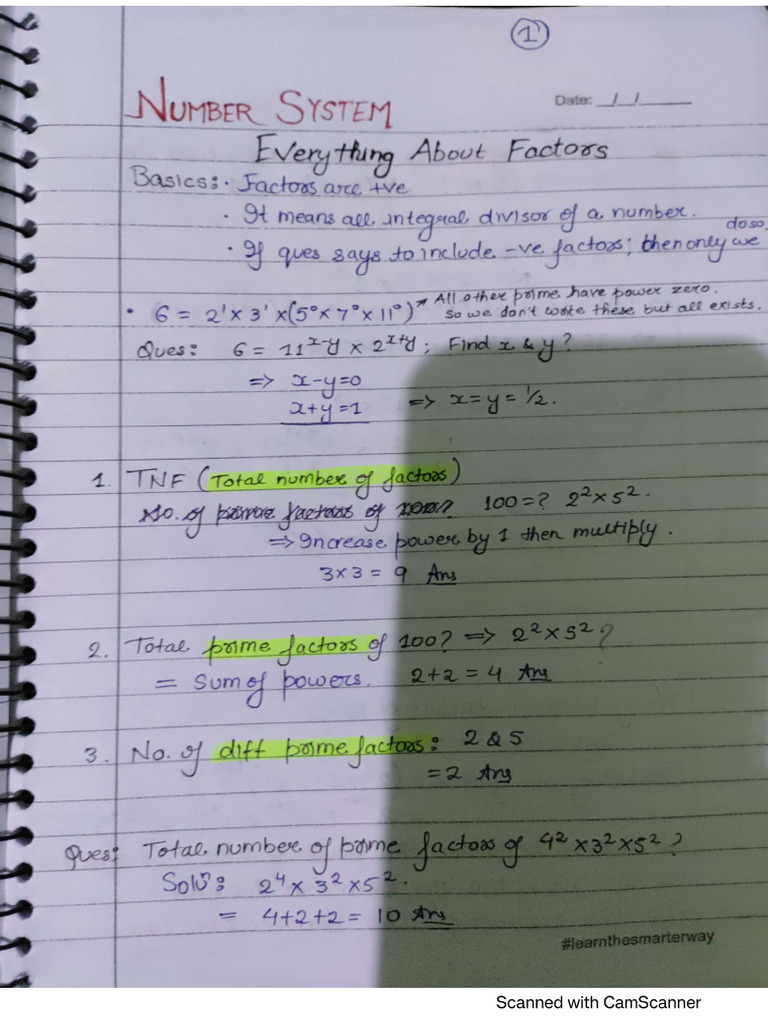 1
NUMBER SYSTEM
Date: __/__/____
Everything About Factors
Basics: · Factors are +ve
· It means all integral divisor of a number.
· If ques says to include -ve factors; then only we do so.
· 6 = 2¹ × 3¹ × (5⁰ × 7⁰ × 11⁰) → All other prime have power zero.
So we don't write these but all exists.
Ques: 6 = 11ˣ⁻ʸ × 2ˣ⁺ʸ; Find x & y?
=> x-y=0
x+y=1 => x=y=1/2.
1. TNF (Total number of factors)
No. of prime factors of 100? 100=? 2²×5².
=> Increase power by 1 then multiply.
3×3 = 9 Ans
2. Total prime factors of 100? => 2²×5²?
= Sum of powers. 2+2 = 4 Ans
3. No. of diff prime factors: 2 & 5
= 2 Ans
Ques: Total number of prime factors of 4²×3²×5²?
Solⁿ: 2⁴ × 3² × 5².
= 4+2+2 = 10 Ans
#learnthesmarterway
Scanned with CamScanner